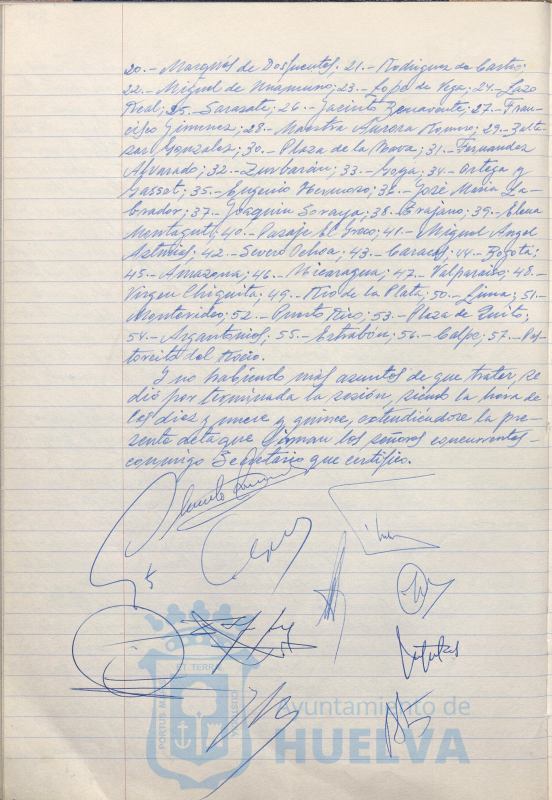 20.- Marqués de Dosfuentes; 21.- Rodriguez de Castro;
22.- Miguel de Unamuno; 23.- Lope de Vega; 24.- Lazo
Real; 25.- Sarasate; 26.- Jacinto Benavente; 27.- Fran-
cisco Gimenez; 28.- Maestra Aurora Romero; 29.- Balta-
sar Gonzalez; 30.- Plaza de la Nava; 31.- Fernandez
Alvarado; 32.- Zurbarán; 33.- Goya; 34.- Ortega y
Gasset; 35.- Eugenio Hermoso; 36.- José Maria La-
brador; 37.- Joaquin Soroya; 38.- Trajano; 39.- Elena
Montagut; 40.- Pasaje El Greco; 41.- Miguel Angel
Asturias; 42.- Severo Ochoa; 43.- Caracas; 44.- Bogotá;
45.- Amazona; 46.- Nicaragua; 47.- Valparaiso; 48.-
Virgen Chiquita; 49.- Rio de la Plata; 50.- Lima; 51.-
Montevideo; 52.- Puerto Rico; 53.- Plaza de Quito;
54.- Argantonio; 55.- Estrabón; 56.- Calpe; 57.- Pas-
torcito del Rocio.
Y no habiendo más asuntos de que tratar, se
dió por terminada la sesión, siendo la hora de
las diez y nueve y quince, extendiéndose la pre-
sente acta que firman los señores concurrentes
conmigo Secretario que certifico.
PORTUS MARIS ET TERRAE CUSTODIA
Ayuntamiento de
HUELVA